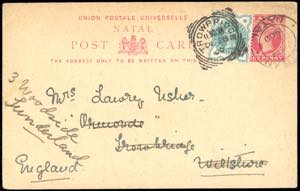 UNION POSTALE UNIVERSELLE
NATAL
POST CARD
THE ADDRESS ONLY TO BE WRITTEN ON THIS
TROWBRIDGE
NATAL
Mrs Lawry Usher
Ormonde
Trowbridge
Wiltshire
3 Woodside
Sunderland
England